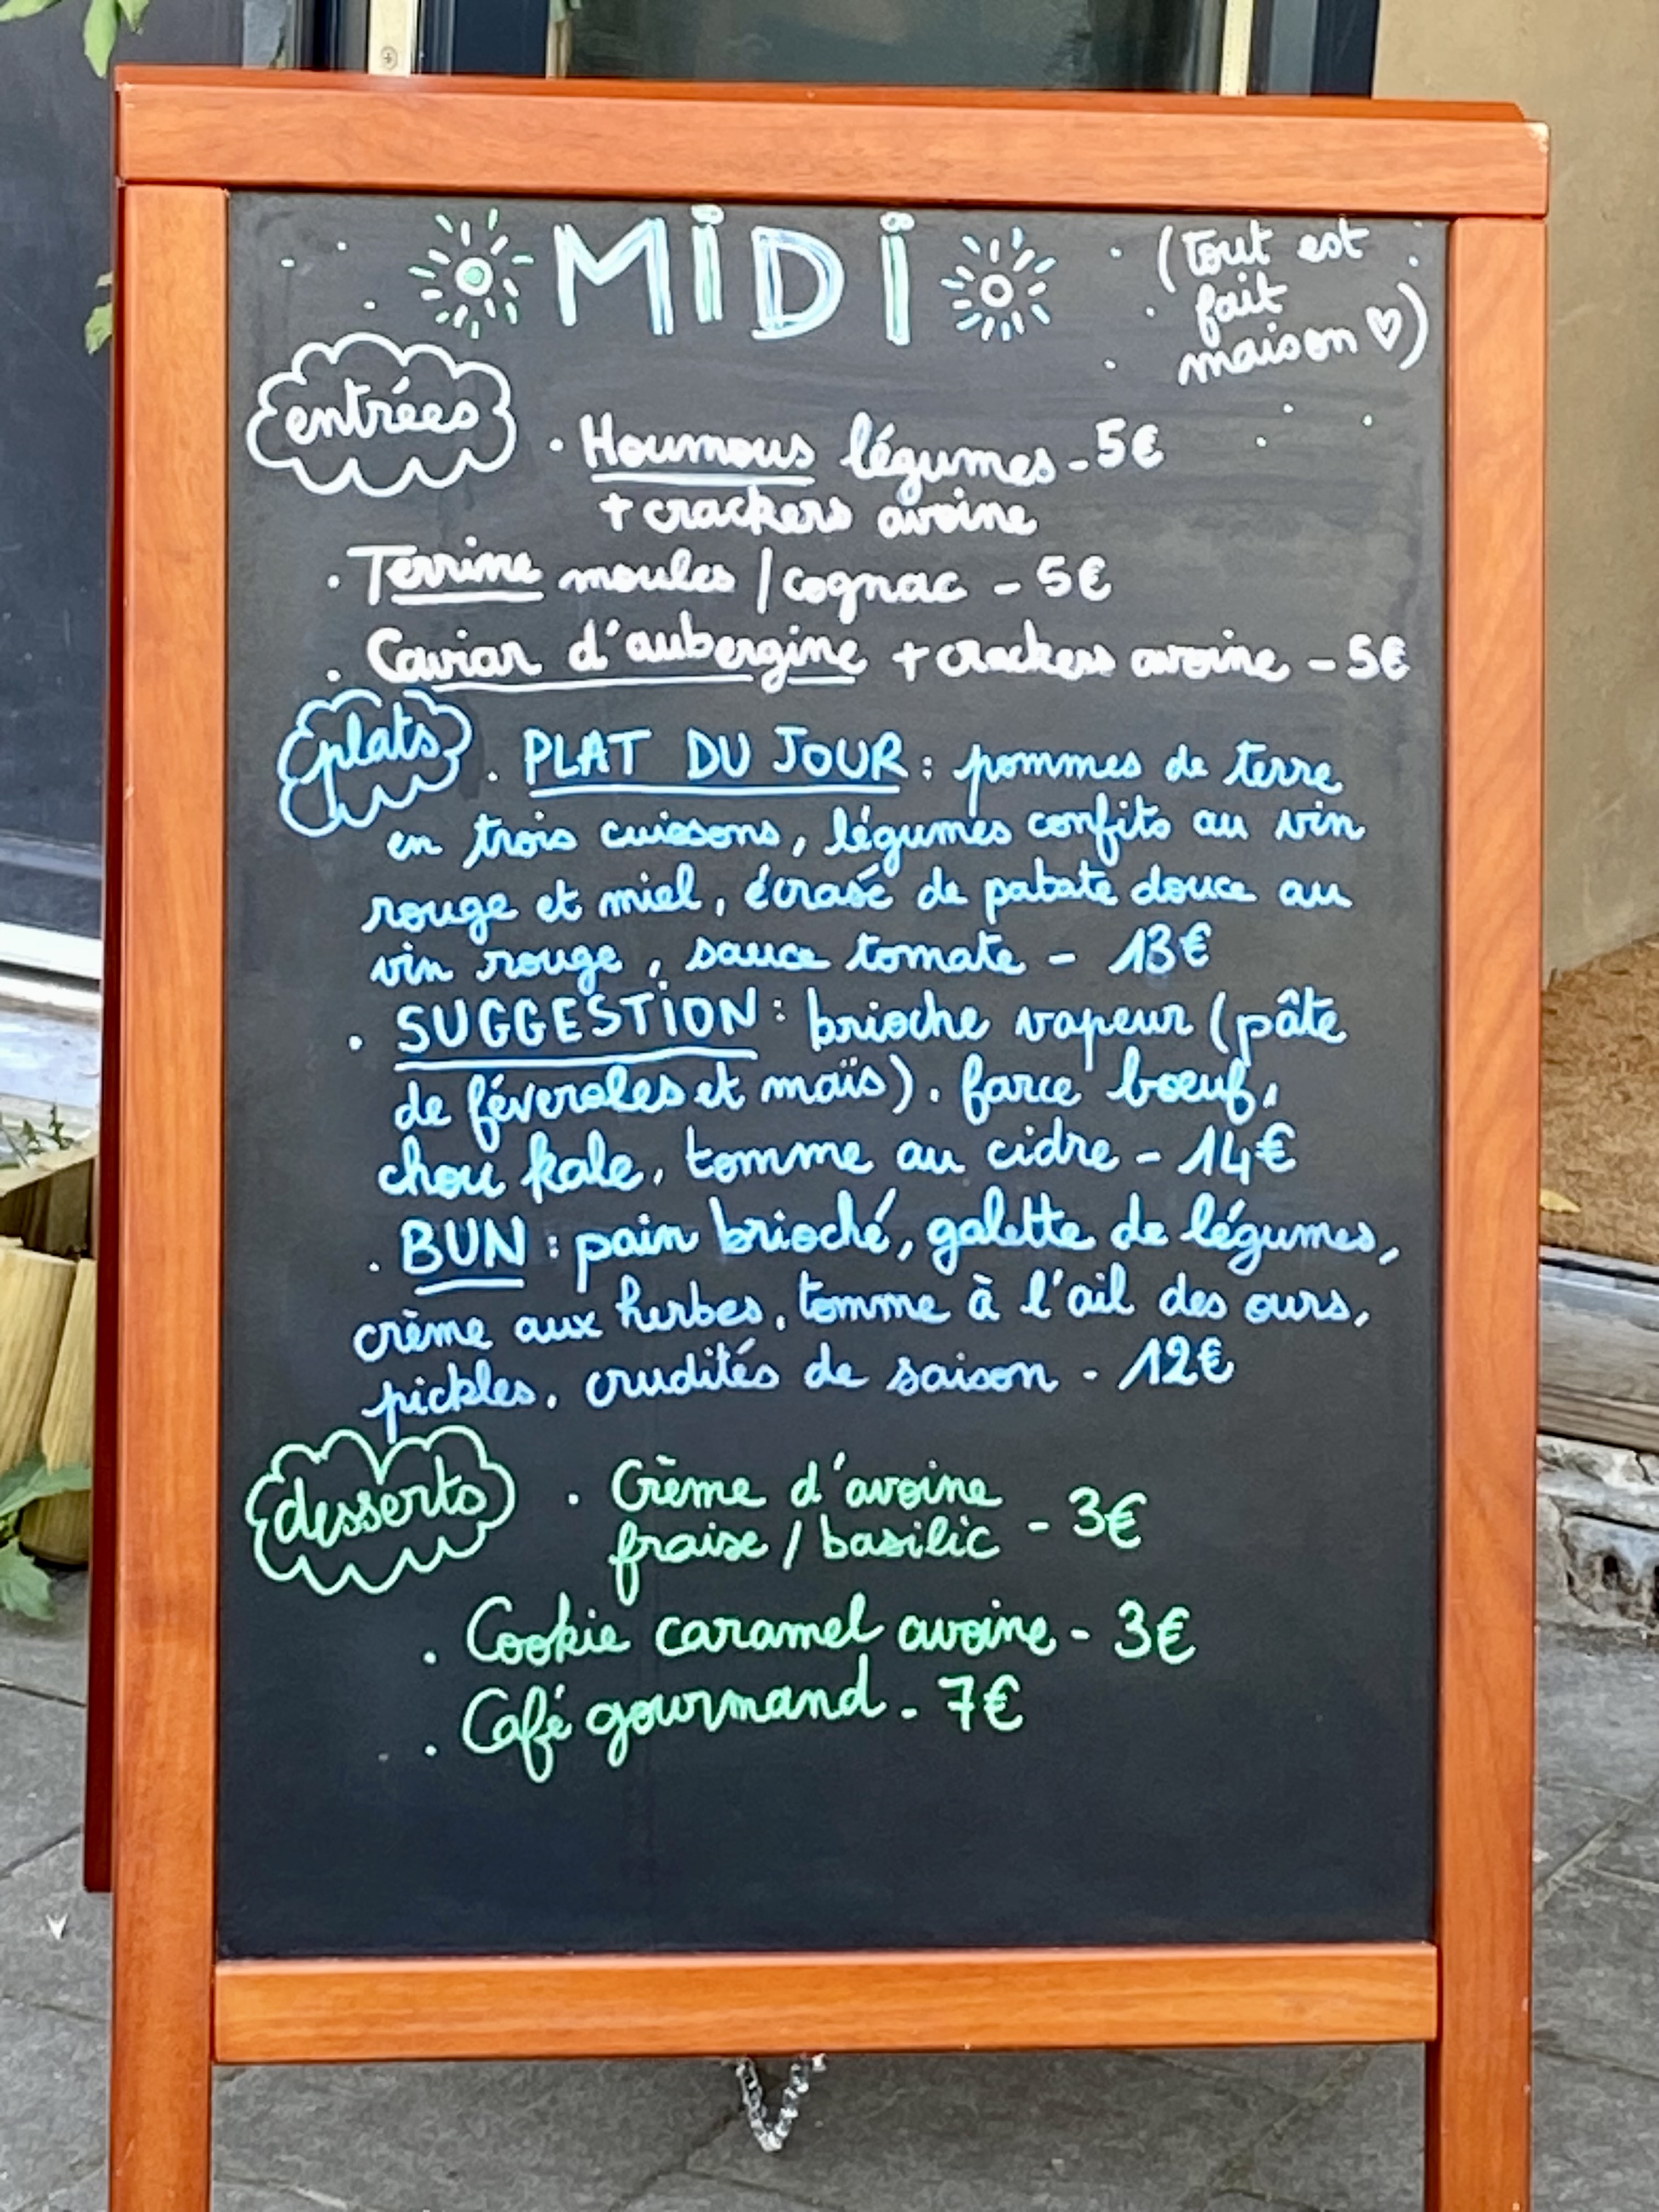 MIDI
(tout est
fait
maison ♡)
entrées
· Houmous légumes - 5€
+ crackers avoine
· Terrine moules / cognac - 5€
· Caviar d'aubergine + crackers avoine - 5€
plats
· PLAT DU JOUR : pommes de terre
en trois cuissons, légumes confits au vin
rouge et miel, écrasé de patate douce au
vin rouge, sauce tomate - 13€
· SUGGESTION : brioche vapeur (pâte
de féveroles et maïs), farce boeuf,
chou kale, tomme au cidre - 14€
· BUN : pain brioché, galette de légumes,
crème aux herbes, tomme à l'ail des ours,
pickles, crudités de saison - 12€
desserts
· Crème d'avoine
fraise / basilic - 3€
· Cookie caramel avoine - 3€
· Café gourmand - 7€